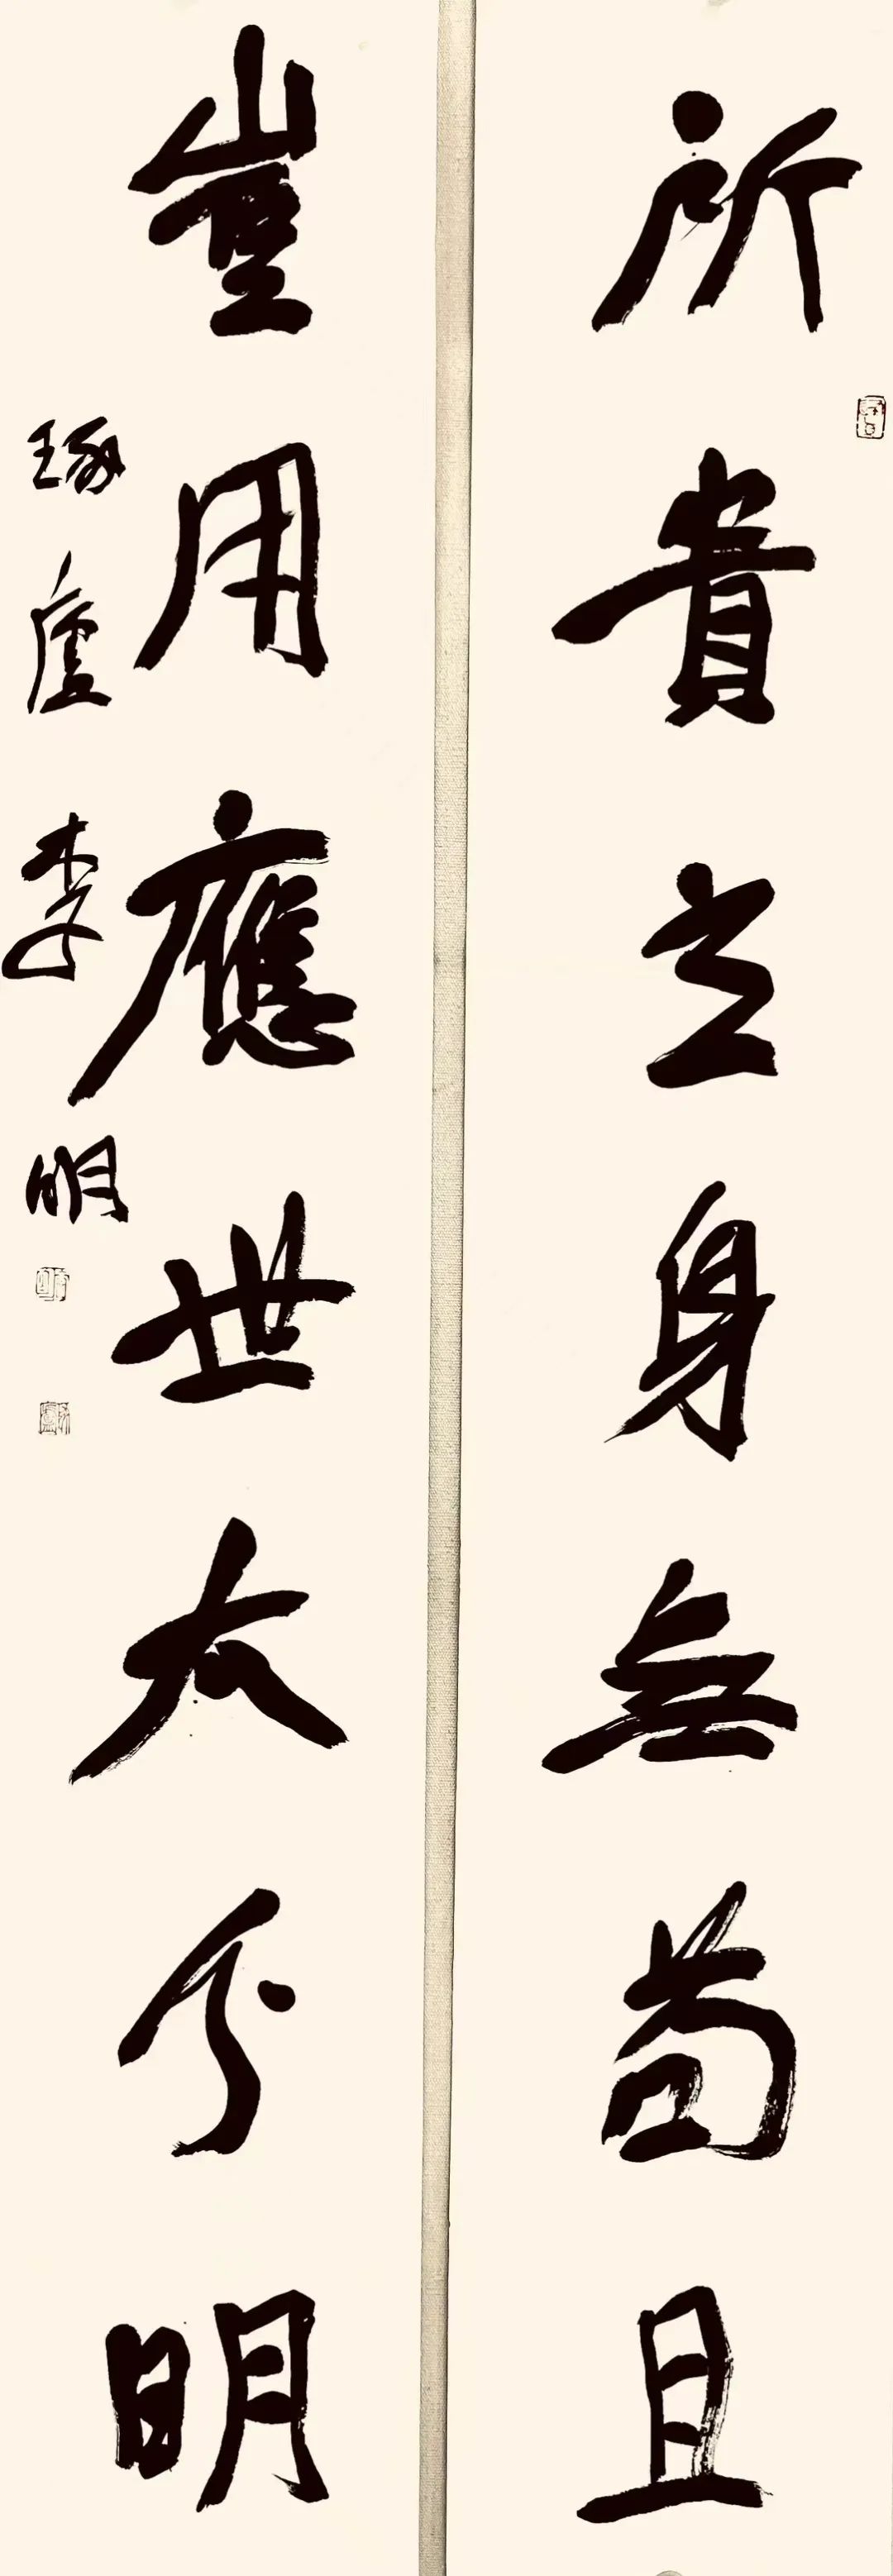 所貴立身無苟且
豈用應世太分明
琢廬李明